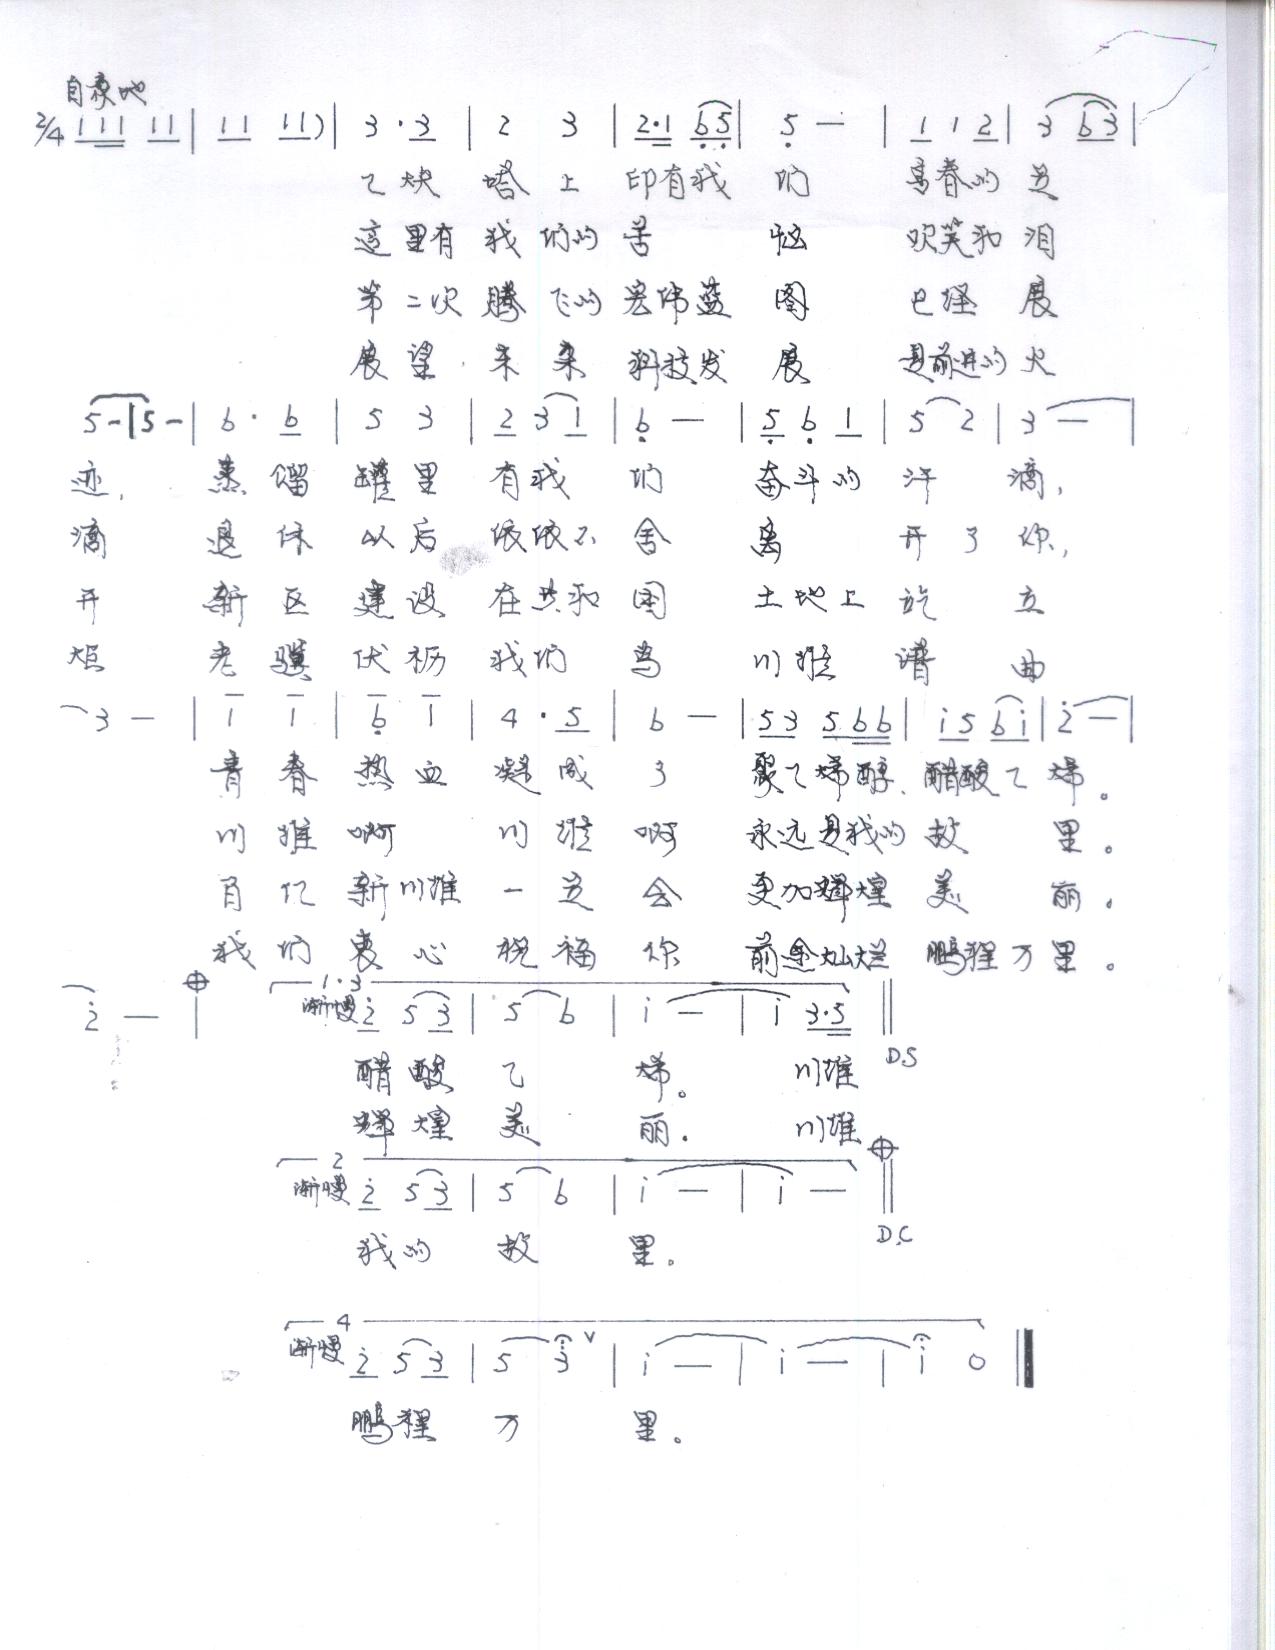 自豪地
2/4 1 1 1 1 1 | 1 1 1 1) | 3 · 3 | 2 3 | 2·1 6 5 | 5 — | 1 1 2 | 3 6 3 |
乙炔 塔上 印有我 们 青春的 足
这里有 我们的 苦 恼 欢笑和 泪
第二次 腾飞的 宏伟蓝 图 已经 展
展望 未来 科技发 展 是前进的 火
5 - | 5 - | 6 · 6 | 5 3 | 2 3 1 | 6 — | 5 6 1 | 5 2 | 3 — |
迹, 蒸馏 罐里 有我 们 奋斗的 汗 滴,
滴 退休 以后 依依不 舍 离 开了 你,
开 新区 建设 在共和 国 土地上 屹 立
炬 老骥 伏枥 我们 为 川维 谱 曲
3 — | 1 1 | 6 1 | 4 · 5 | 6 — | 5 3 5 6 6 | i 5 6 i | 2 — |
青春 热血 凝成 了 聚乙烯醇、醋酸乙 烯。
川维 啊 川维 啊 永远是我的 故 里。
新川维 一定 会 更加辉煌 美 丽。
我们 衷心 祝福 你 前途灿烂 鹏程万 里。
2 — | 1·3 渐慢 2 5 3 | 5 6 | i — | i 3·5 || D.S
醋酸 乙 烯。 川维
辉煌 美 丽. 川维
2 渐慢 2 5 3 | 5 6 | i — | i — || D.C
我的 故 里。
4 渐慢 2 5 3 | 5 3 ∨ | i — | i — | i 0 ||
鹏程 万 里。